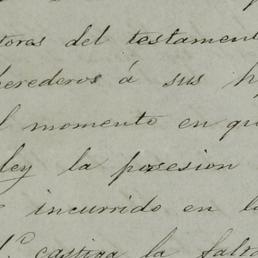 toras del testament
herederos á sus h
l momento en qu
ley la posesion
incurrido en la
castiga la falta